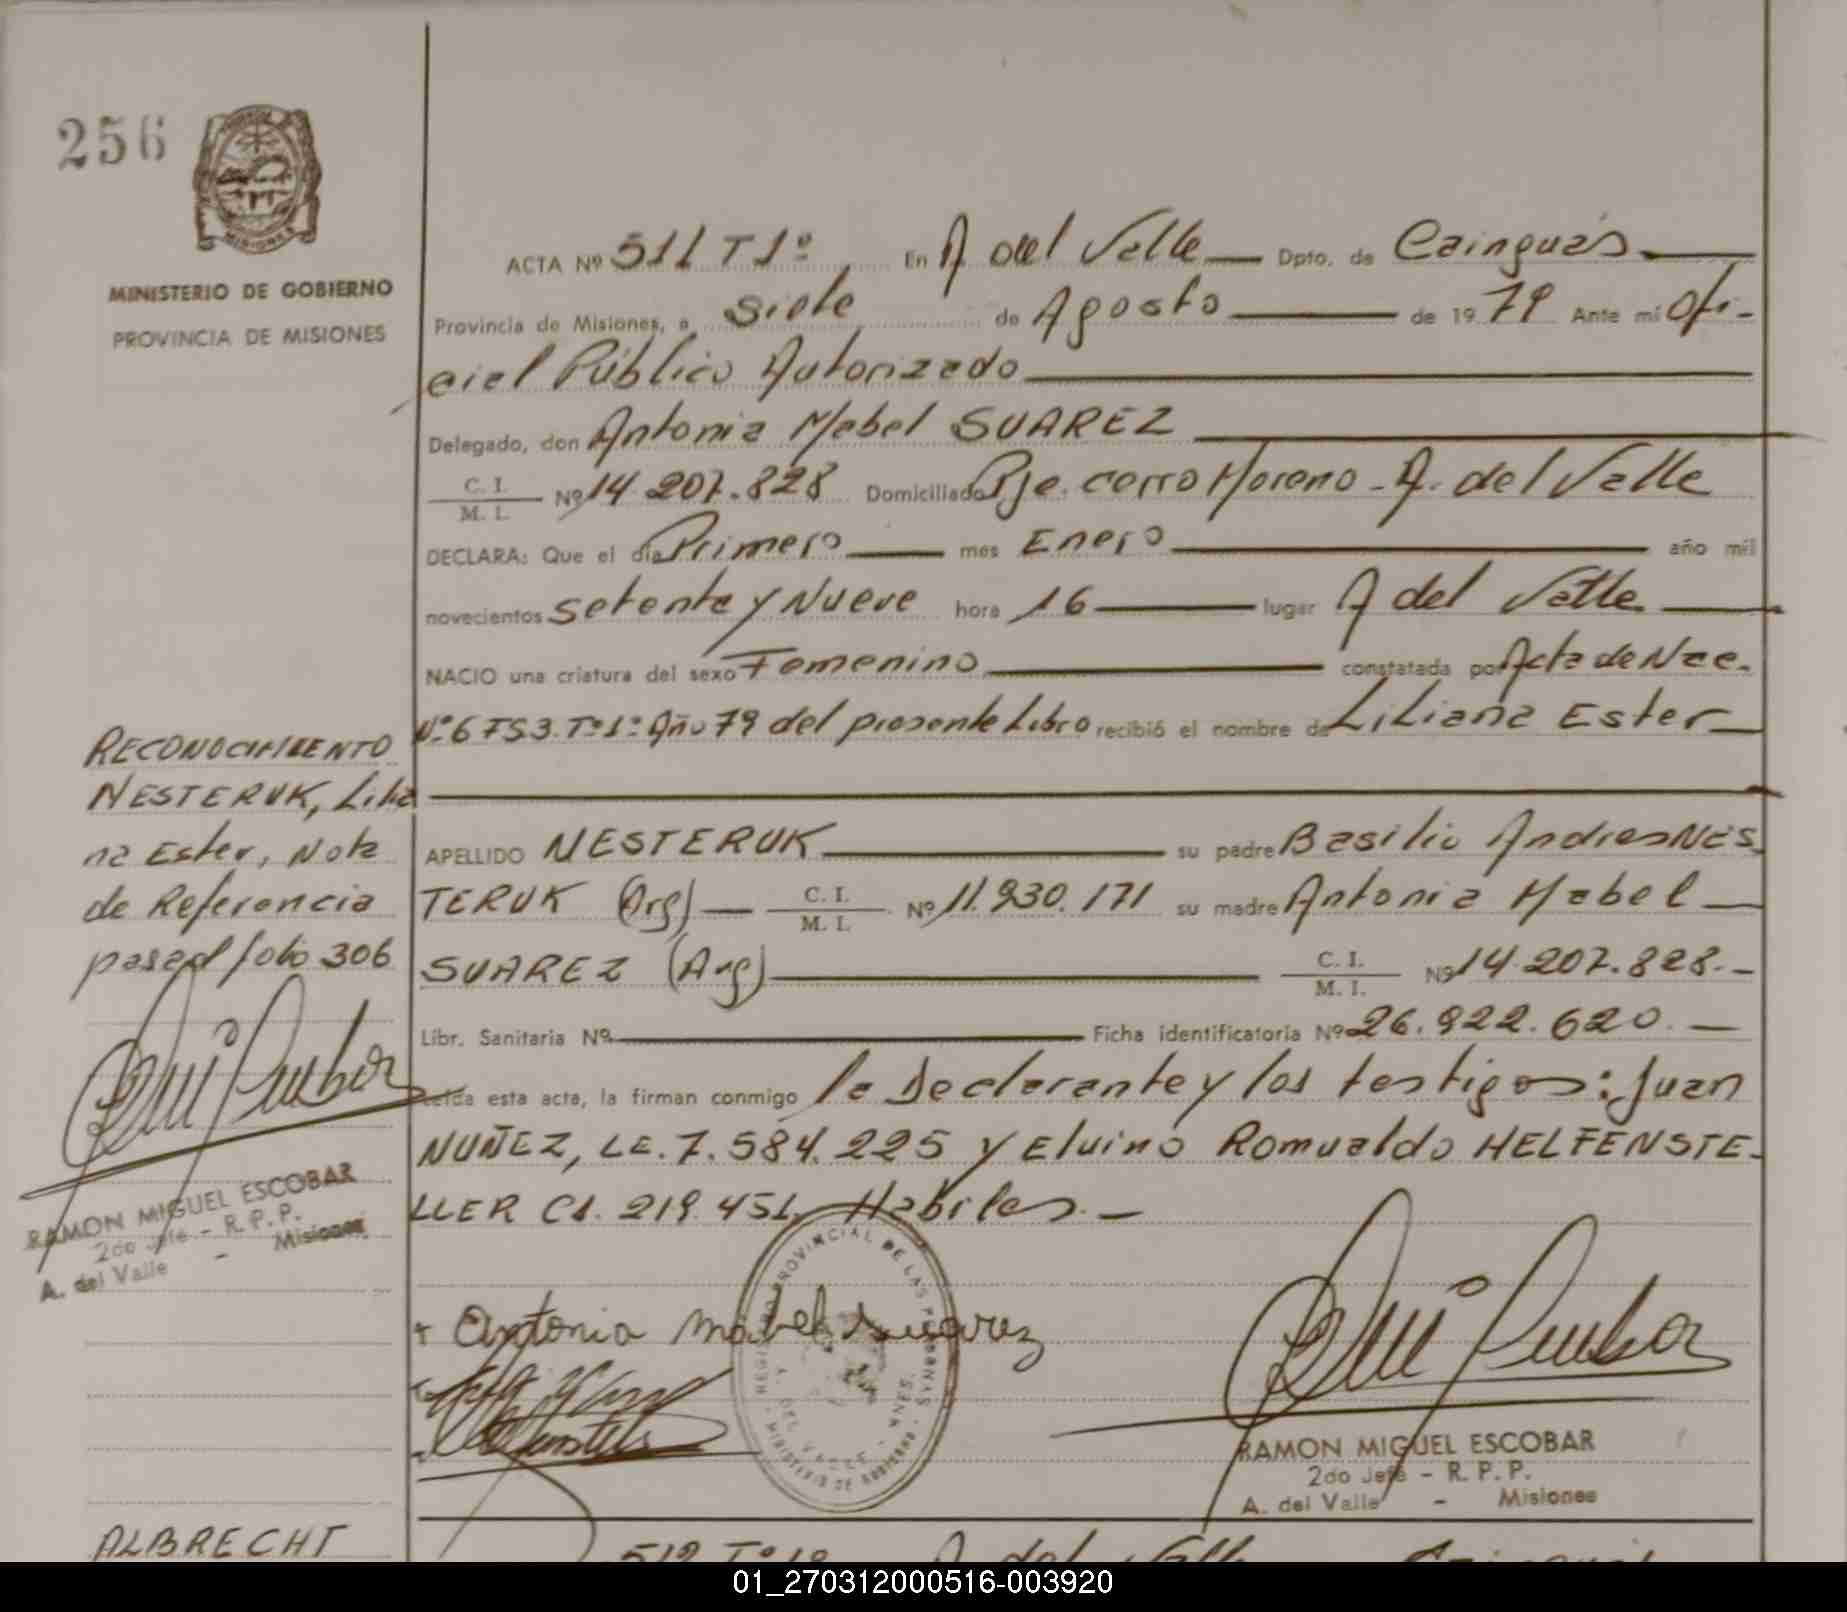 256
MISIONES
MINISTERIO DE GOBIERNO
PROVINCIA DE MISIONES
ACTA Nº 511 T 1º En A del Valle Dpto. de Cainguás
Provincia de Misiones, a siete de Agosto de 1979 Ante mí Ofi-
cial Público Autorizado
Delegado, don Antonia Mabel SUAREZ
C. I.
M. I. Nº 14.207.828 Domiciliado Pje. cerro Moreno - A. del Valle
DECLARA: Que el día Primero mes Enero año mil
novecientos setenta y Nueve hora 16 lugar A del Valle
NACIO una criatura del sexo Femenino constatada por Acta de Nac.
Nº 6 FS3. Tº1º Año 79 del presente Libro recibió el nombre de Liliana Ester
APELLIDO NESTERUK su padre Basilio Andres NES
TERUK (Arg) C. I.
M. I. Nº 11.930.171 su madre Antonia Mabel
SUAREZ (Arg) C. I.
M. I. Nº 14.207.828.-
Libr. Sanitaria Nº Ficha identificatoria Nº 26.922.620.-
Leída esta acta, la firman conmigo la Declarante y los testigos: Juan
NUÑEZ, LE. 7.584.225 y Eluino Romualdo HELFENSTE-
LLER CI. 219.451. Habiles.-
+ Antonia Mabel Suarez
REGISTRO PROVINCIAL DE LAS PERSONAS
A DEL VALLE - MNES.
MINISTERIO DE GOBIERNO
RAMON MIGUEL ESCOBAR
2do Jefe - R. P. P.
A. del Valle - Misiones
RECONOCIMIENTO
NESTERUK, Lilia
na Ester, Nota
de Referencia
pasa al folio 306
RAMON MIGUEL ESCOBAR
2do Jefe - R. P. P.
A. del Valle - Misiones
ALBRECHT
512 Tº 1º A del Valle Cainguás
01_270312000516-003920